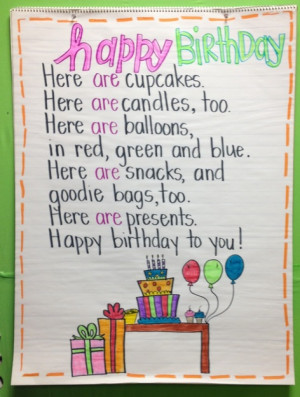 happy BiRthDay
Here are cupcakes.
Here are candles, too.
Here are balloons,
in red, green and blue.
Here are snacks, and
goodie bags, too.
Here are presents.
Happy birthday to you!